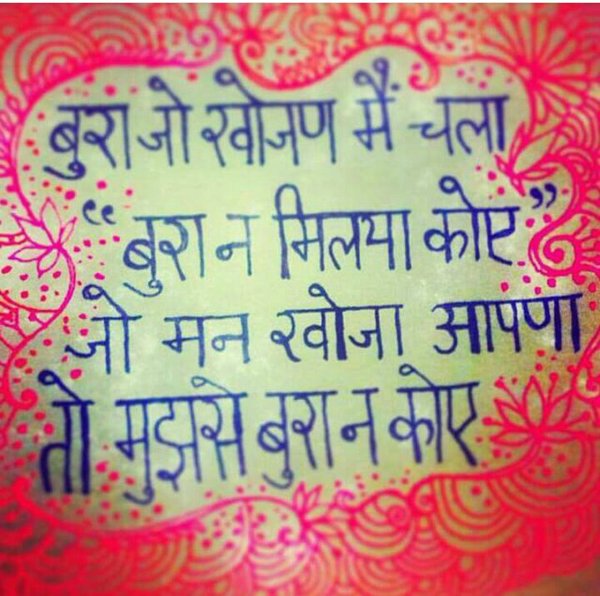 बुरा जो खोजण मैं चला
“बुरा न मिलया कोए”
जो मन खोजा आपणा
तो मुझसे बुरा न कोए